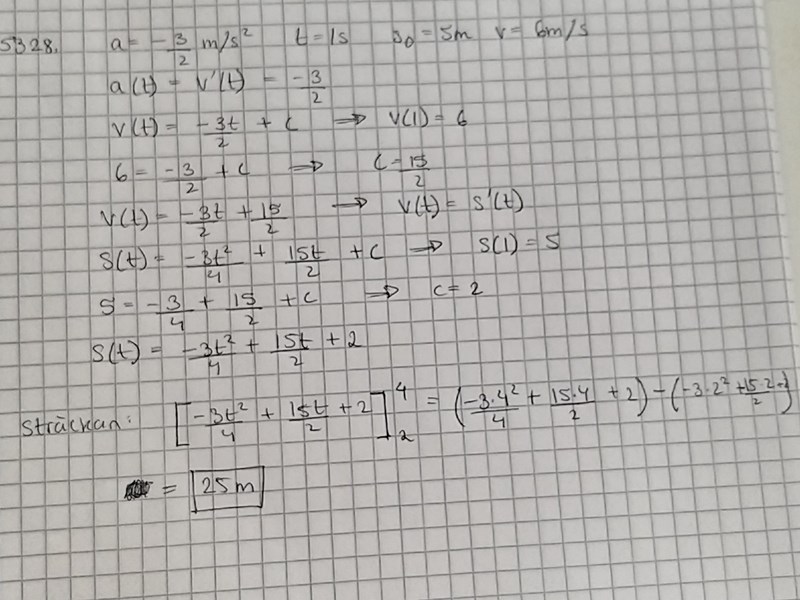 5328. a = -3/2 m/s² t = 1s s₀ = 5m v = 6m/s
a(t) = v'(t) = -3/2
v(t) = -3t/2 + C ⇒ v(1) = 6
6 = -3/2 + C ⇒ C = 15/2
v(t) = -3t/2 + 15/2 ⇒ v(t) = s'(t)
s(t) = -3t²/4 + 15t/2 + C ⇒ s(1) = 5
5 = -3/4 + 15/2 + C ⇒ C = 2
s(t) = -3t²/4 + 15t/2 + 2
Sträckan: [-3t²/4 + 15t/2 + 2]₂⁴ = (-3·4²/4 + 15·4/2 + 2) - (-3·2² + 15·2/2
= 25m